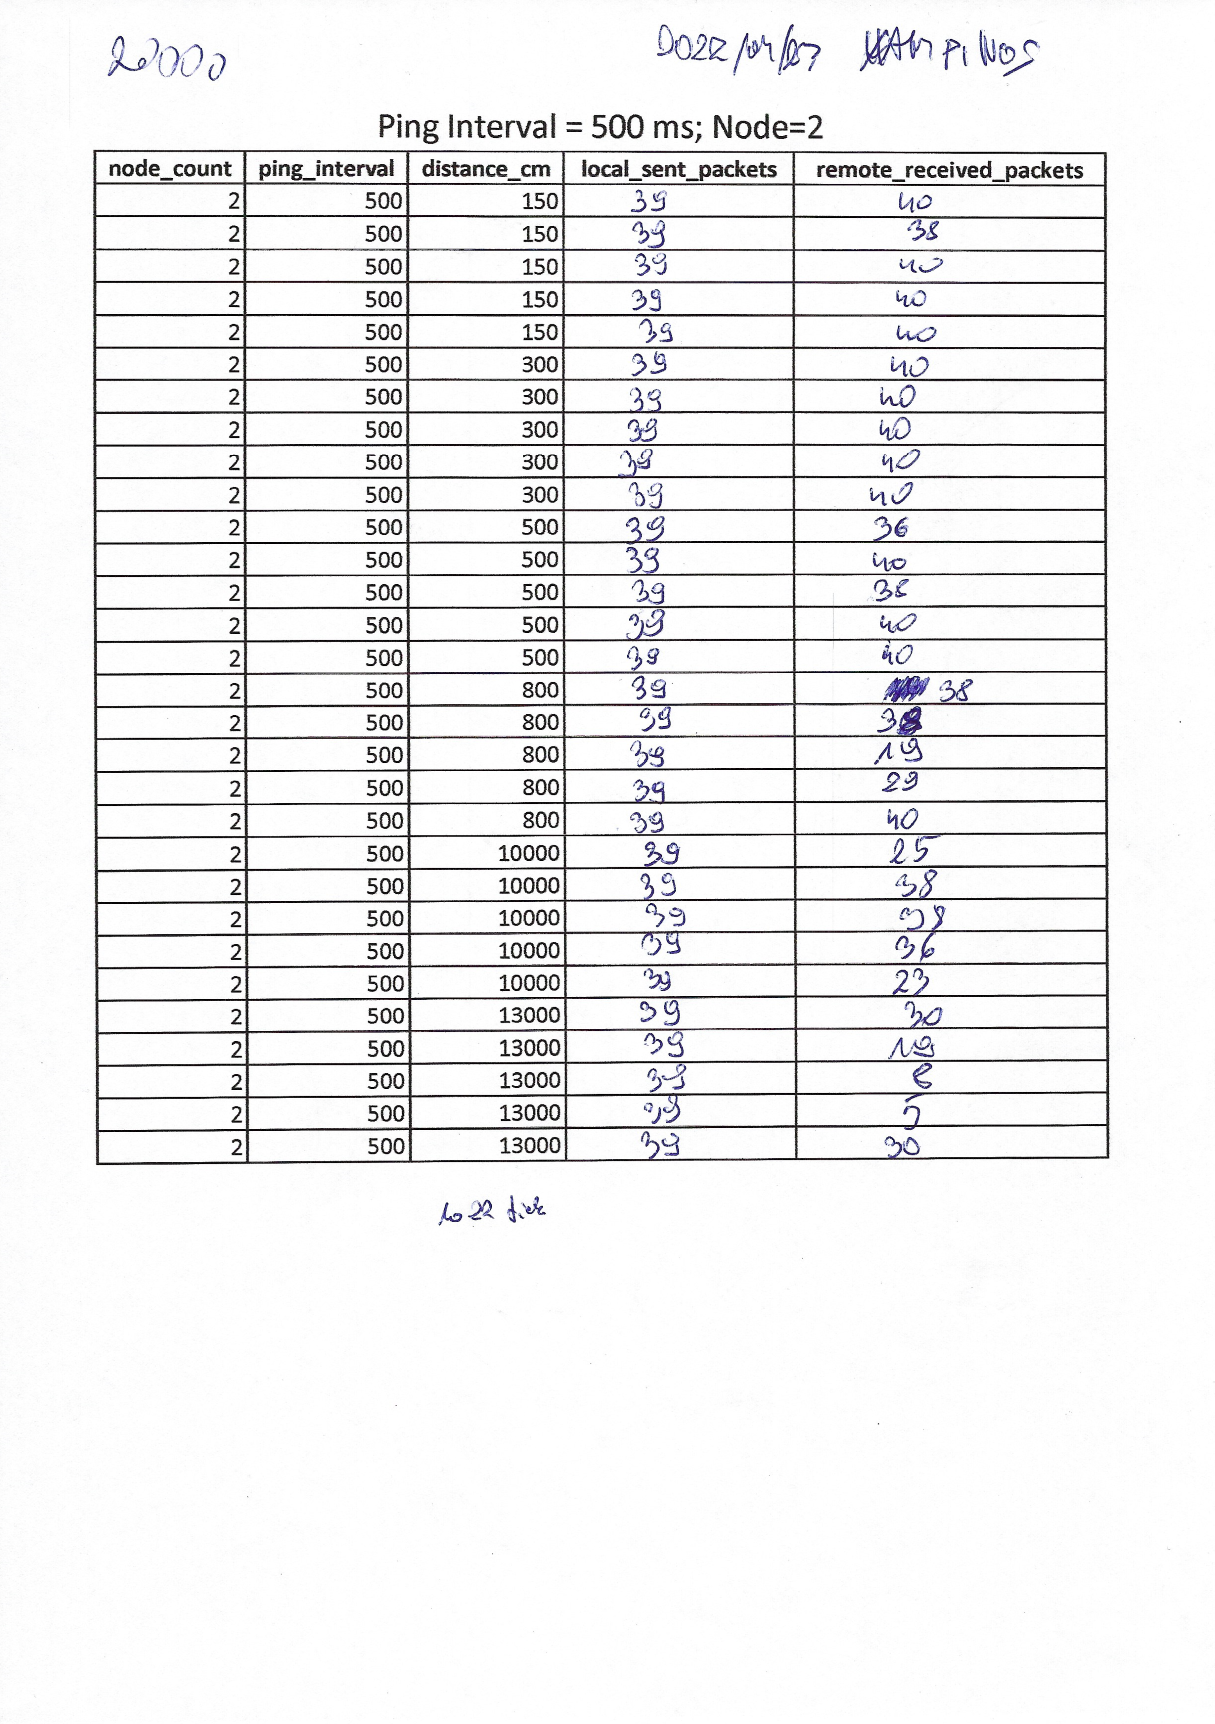 20000
2022/04/27 KAMPINOS
Ping Interval = 500 ms; Node=2
node_count ping_interval distance_cm local_sent_packets remote_received_packets
2 500 150 39 40
2 500 150 39 38
2 500 150 39 40
2 500 150 39 40
2 500 150 39 40
2 500 300 39 40
2 500 300 39 40
2 500 300 39 40
2 500 300 39 40
2 500 300 39 40
2 500 500 39 36
2 500 500 39 40
2 500 500 39 38
2 500 500 39 40
2 500 500 39 40
2 500 800 39 38
2 500 800 39 38
2 500 800 39 19
2 500 800 39 29
2 500 800 39 40
2 500 10000 39 25
2 500 10000 39 38
2 500 10000 39 38
2 500 10000 39 36
2 500 10000 39 23
2 500 13000 39 30
2 500 13000 39 19
2 500 13000 39 6
2 500 13000 39 5
2 500 13000 39 30